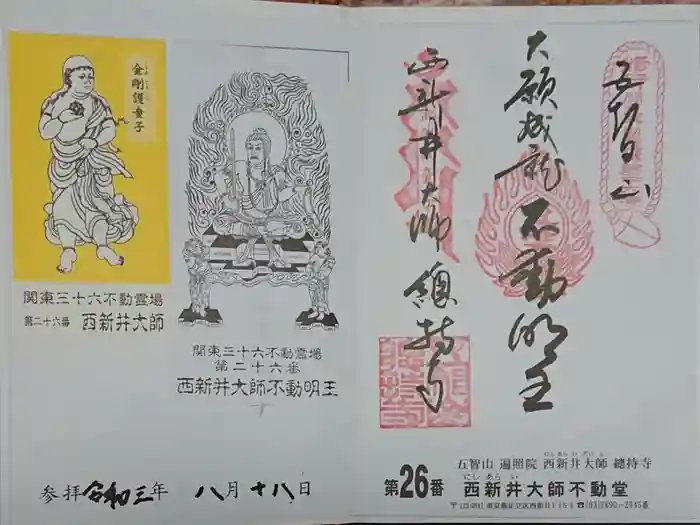 五智山
大願成就 不動明王
西新井大師 總持寺
金剛護童子
関東三十六不動霊場
第二十六番 西新井大師
関東三十六不動霊場
第二十六番
西新井大師不動明王
参拝 令和三年 八月十八日
五智山 遍照院 西新井大師 總持寺
にしあらいだいし
第26番 西新井大師不動堂
にしあらい